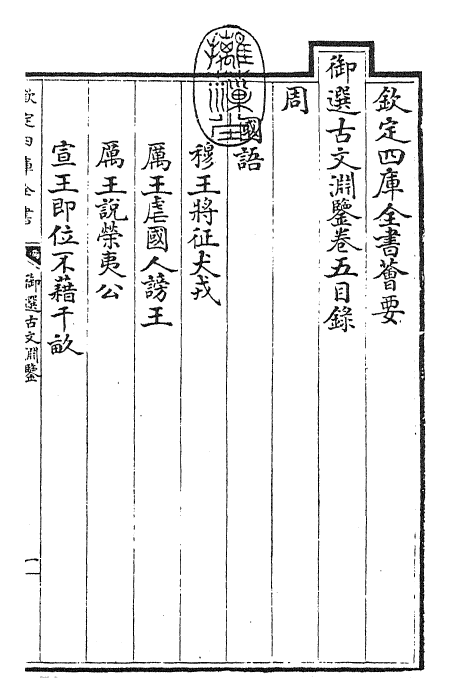 欽定四庫全書薈要
御選古文淵鑒卷五目錄
周
國語
穆王將征犬戎
厲王虐國人謗王
厲王說榮夷公
宣王即位不藉千畝
欽定四庫全書
御選古文淵鑒
一